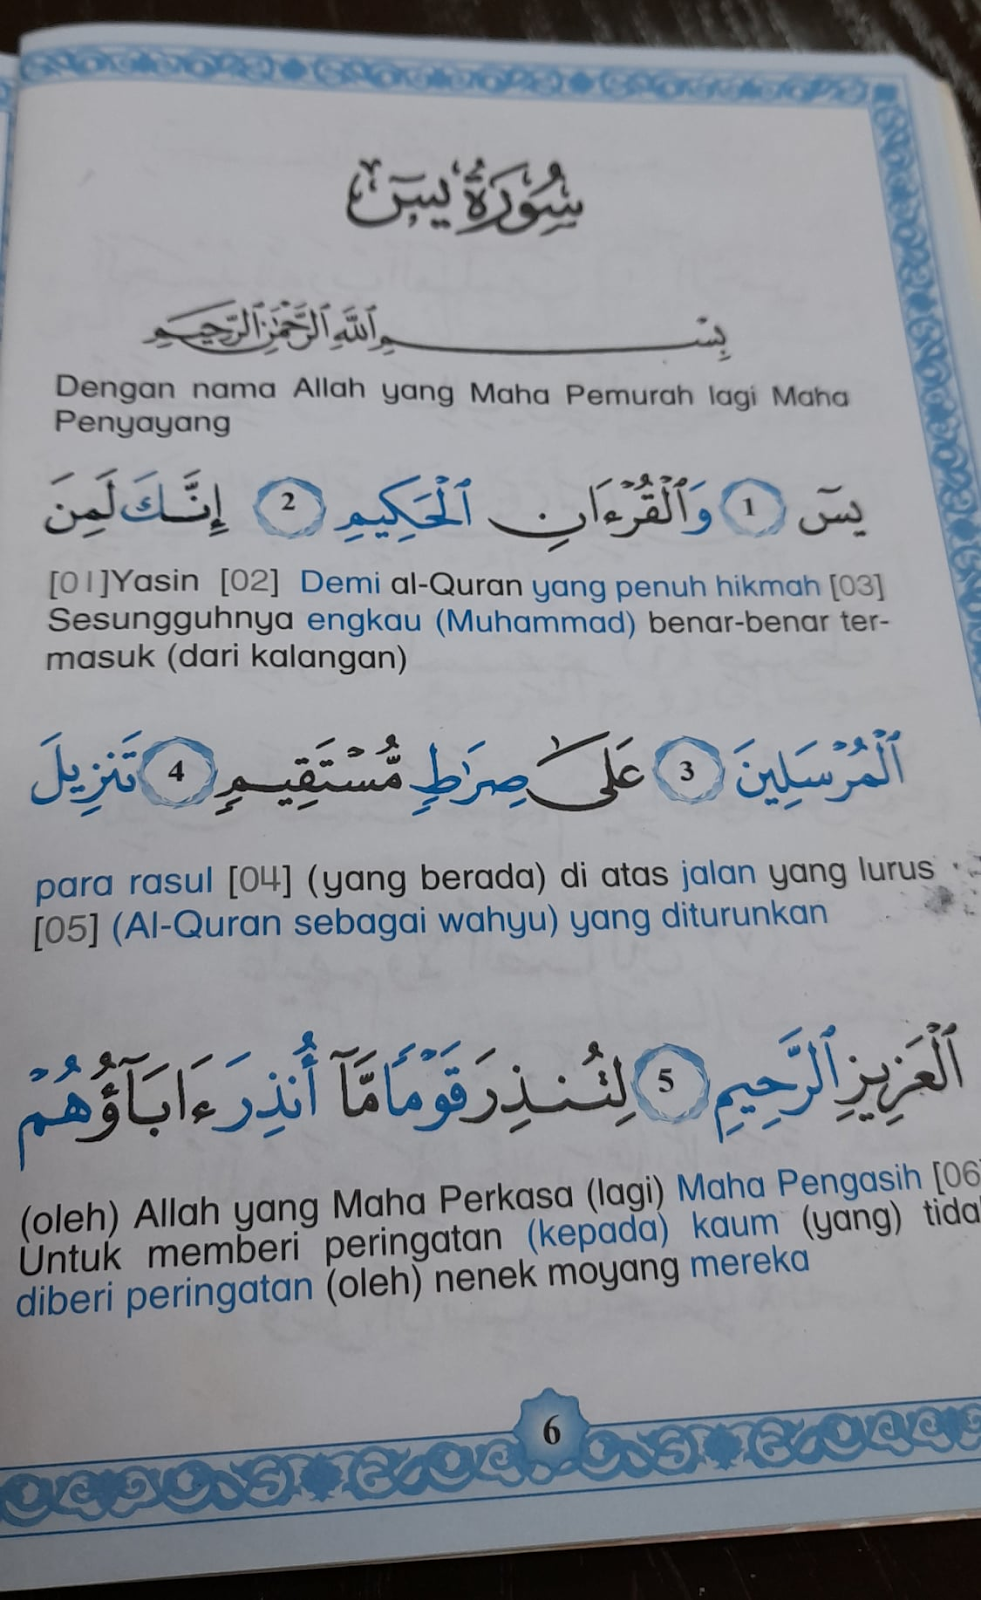 سُورَةُ يسٓ
بِسْمِ ٱللَّهِ ٱلرَّحْمَٰنِ ٱلرَّحِيمِ
Dengan nama Allah yang Maha Pemurah lagi Maha
Penyayang
يسٓ 1 وَٱلْقُرْءَانِ ٱلْحَكِيمِ 2 إِنَّكَ لَمِنَ
[01]Yasin [02] Demi al-Quran yang penuh hikmah [03]
Sesungguhnya engkau (Muhammad) benar-benar ter-
masuk (dari kalangan)
ٱلْمُرْسَلِينَ 3 عَلَىٰ صِرَٰطٍ مُّسْتَقِيمٍ 4 تَنزِيلَ
para rasul [04] (yang berada) di atas jalan yang lurus
[05] (Al-Quran sebagai wahyu) yang diturunkan
ٱلْعَزِيزِ ٱلرَّحِيمِ 5 لِتُنذِرَ قَوْمًا مَّآ أُنذِرَ ءَابَآؤُهُمْ
(oleh) Allah yang Maha Perkasa (lagi) Maha Pengasih [06
Untuk memberi peringatan (kepada) kaum (yang) tida
diberi peringatan (oleh) nenek moyang mereka
6